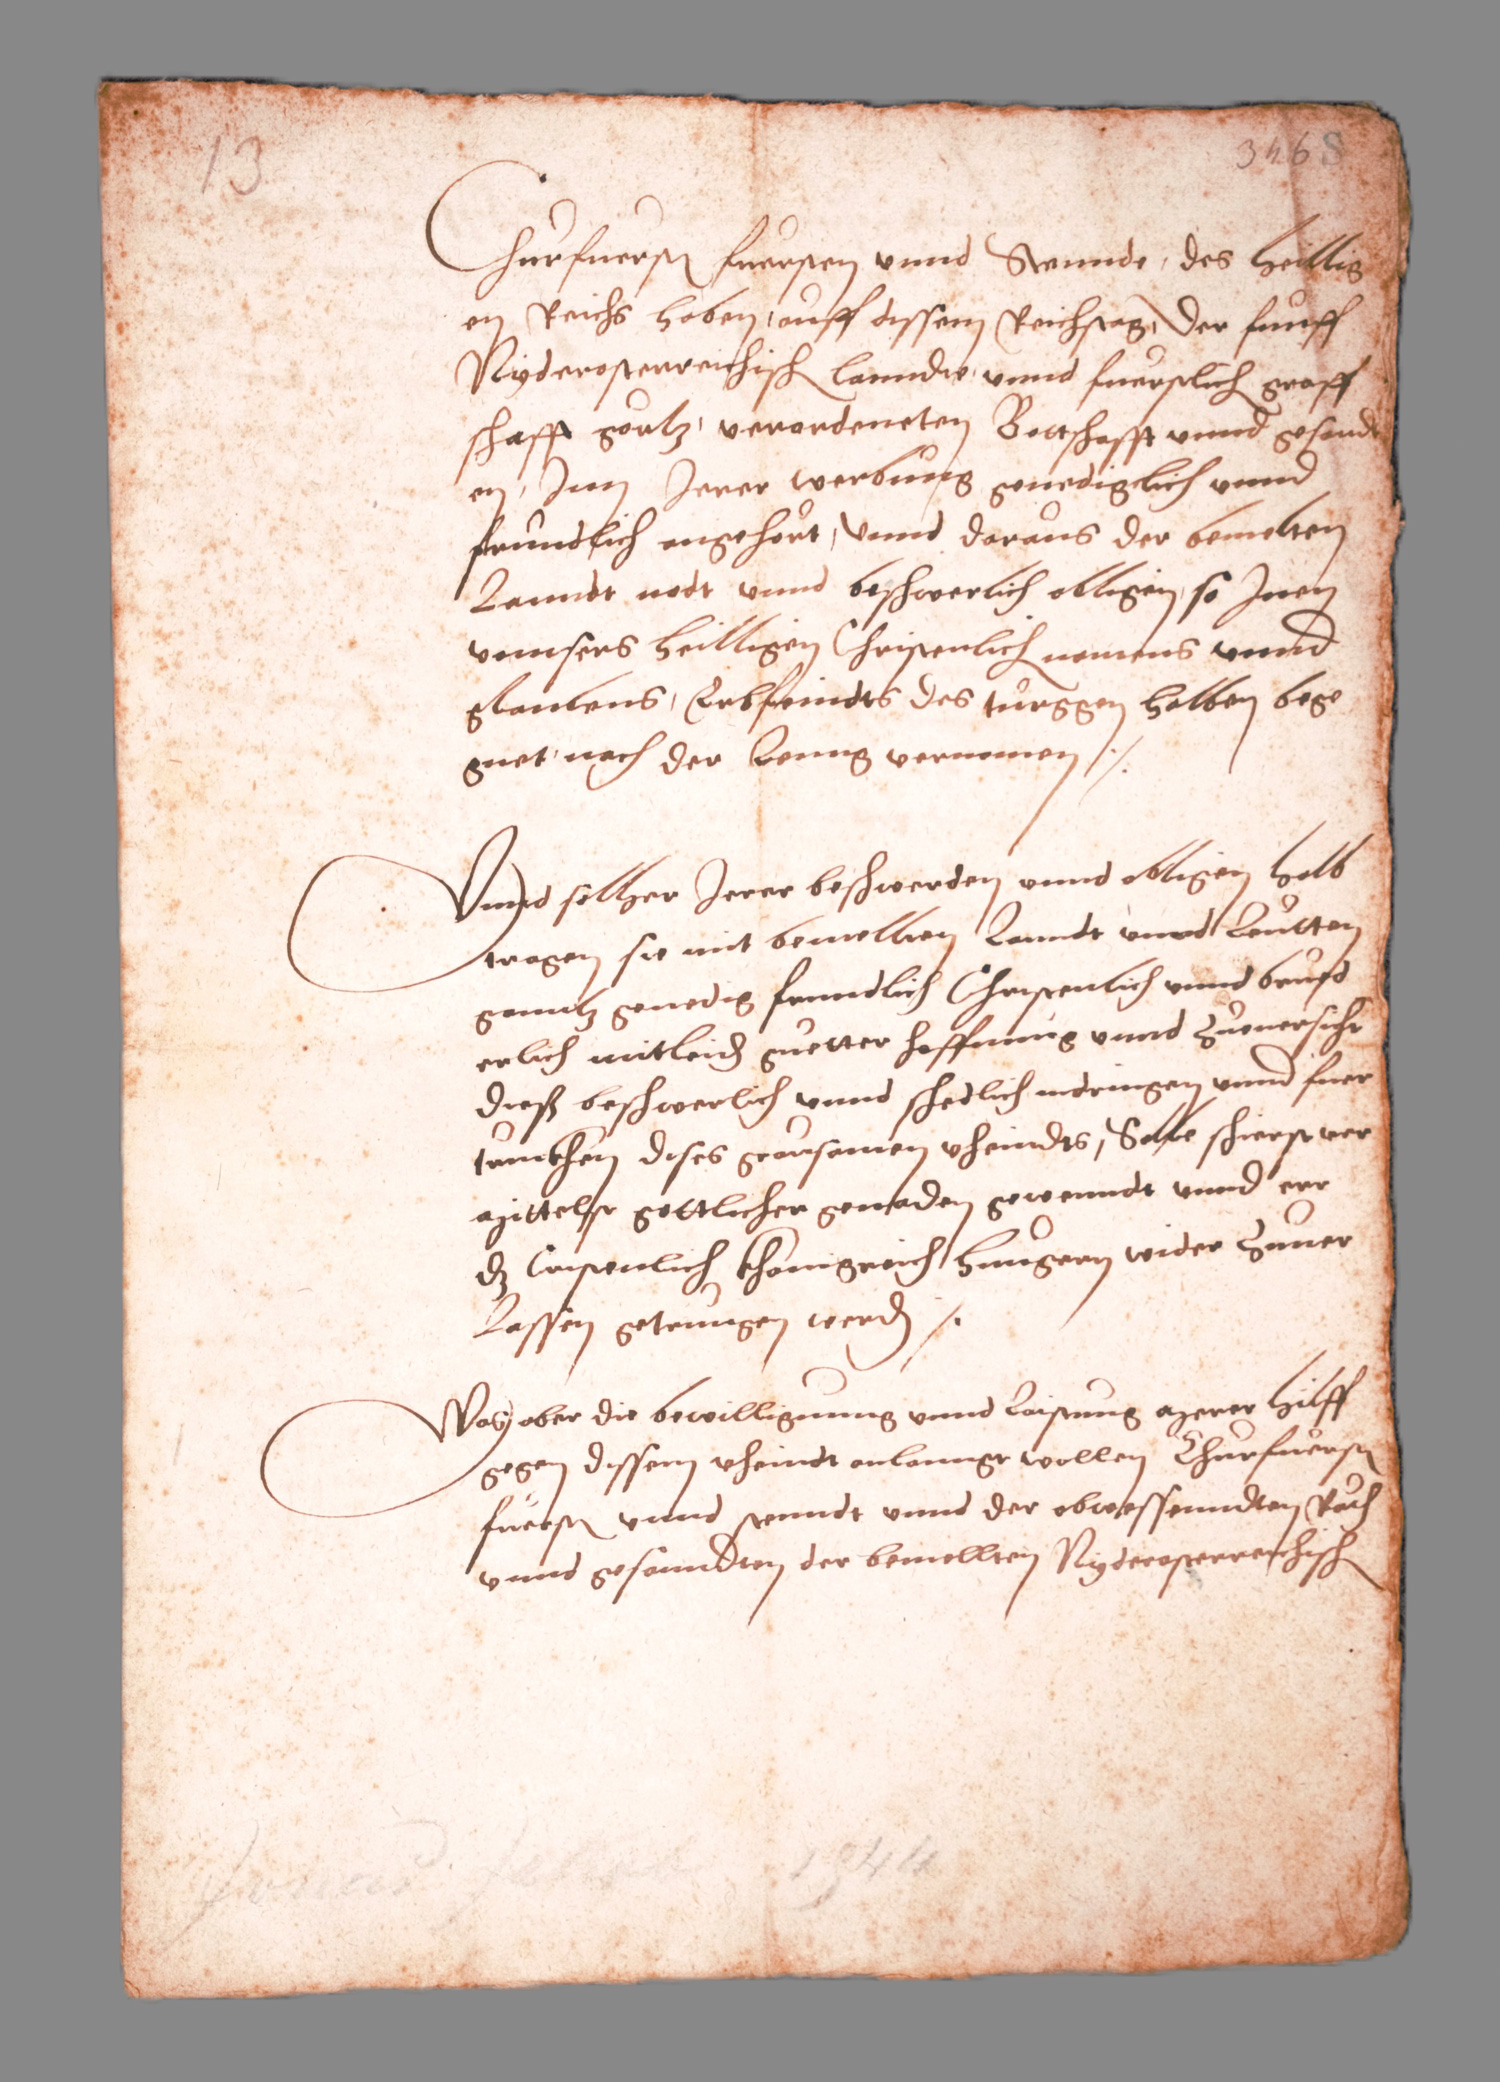 13
3468
Churfuersten fuersten vnnd Stennde, des heillig
en Reichs haben, auff dissem Reichstag, der funff
Nyderosterreichisch lanndte vnnd fuerstlich graff
schafft gortz, verordeneten Bottschafft vnnd gesandt
en, Inn Jerer werbung genediglich vnnd
frundlich angehort, vnnd daraus der bemelten
Lanndt nodt vnnd beschwerlich obligen, so Inen
vonnsers heilligen Christenlich namens vnnd
glaubens, Erbfeindts des turggen halben bege
gnet, nach der Leng vernomen ./.
Vnnd sollher Jerer beschwerden vnnd obligen halb
tragen sie mit bemellten Lanndt vnnd Leutten
ganntz genedig frundlich Christenlich vnnd brued
erlich mitleid guetter hoffnung vnnd Zuuersicht
diess beschwerlich vnnd schedlich indringen vnnd fuer
tunckhen dises grausamen vheindts, Solle schierst ver
mittelst gottlicher genaden gewenndt vnnd err
dz Cristenlich khonigreich hungern wider Zuuer
Lassen getrungen werden ./.
Was aber die bewilligunng vnnd Laistung merer hilff
gegen dissem vheindt anlanngt wollen Churfuersten
fuersten vnnd stenndt vnnd der abwessenndten Rath
vnnd gesanndten der bemellten Nyderosterreichisch
1544